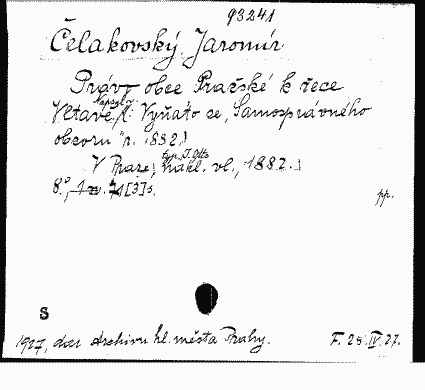 93241
Čelakovský Jaromír
Právo obce Pražské k řece
Vltavě. Napsal Vyňato ze "Samosprávného
obzoru" r. 1882.)
V Praze, typ. J. Otto nákl. vl., 1882.
8°, [3] s.
pp.
S
1927, dar Archivu hl. města Prahy.
F. 25.IV.27.